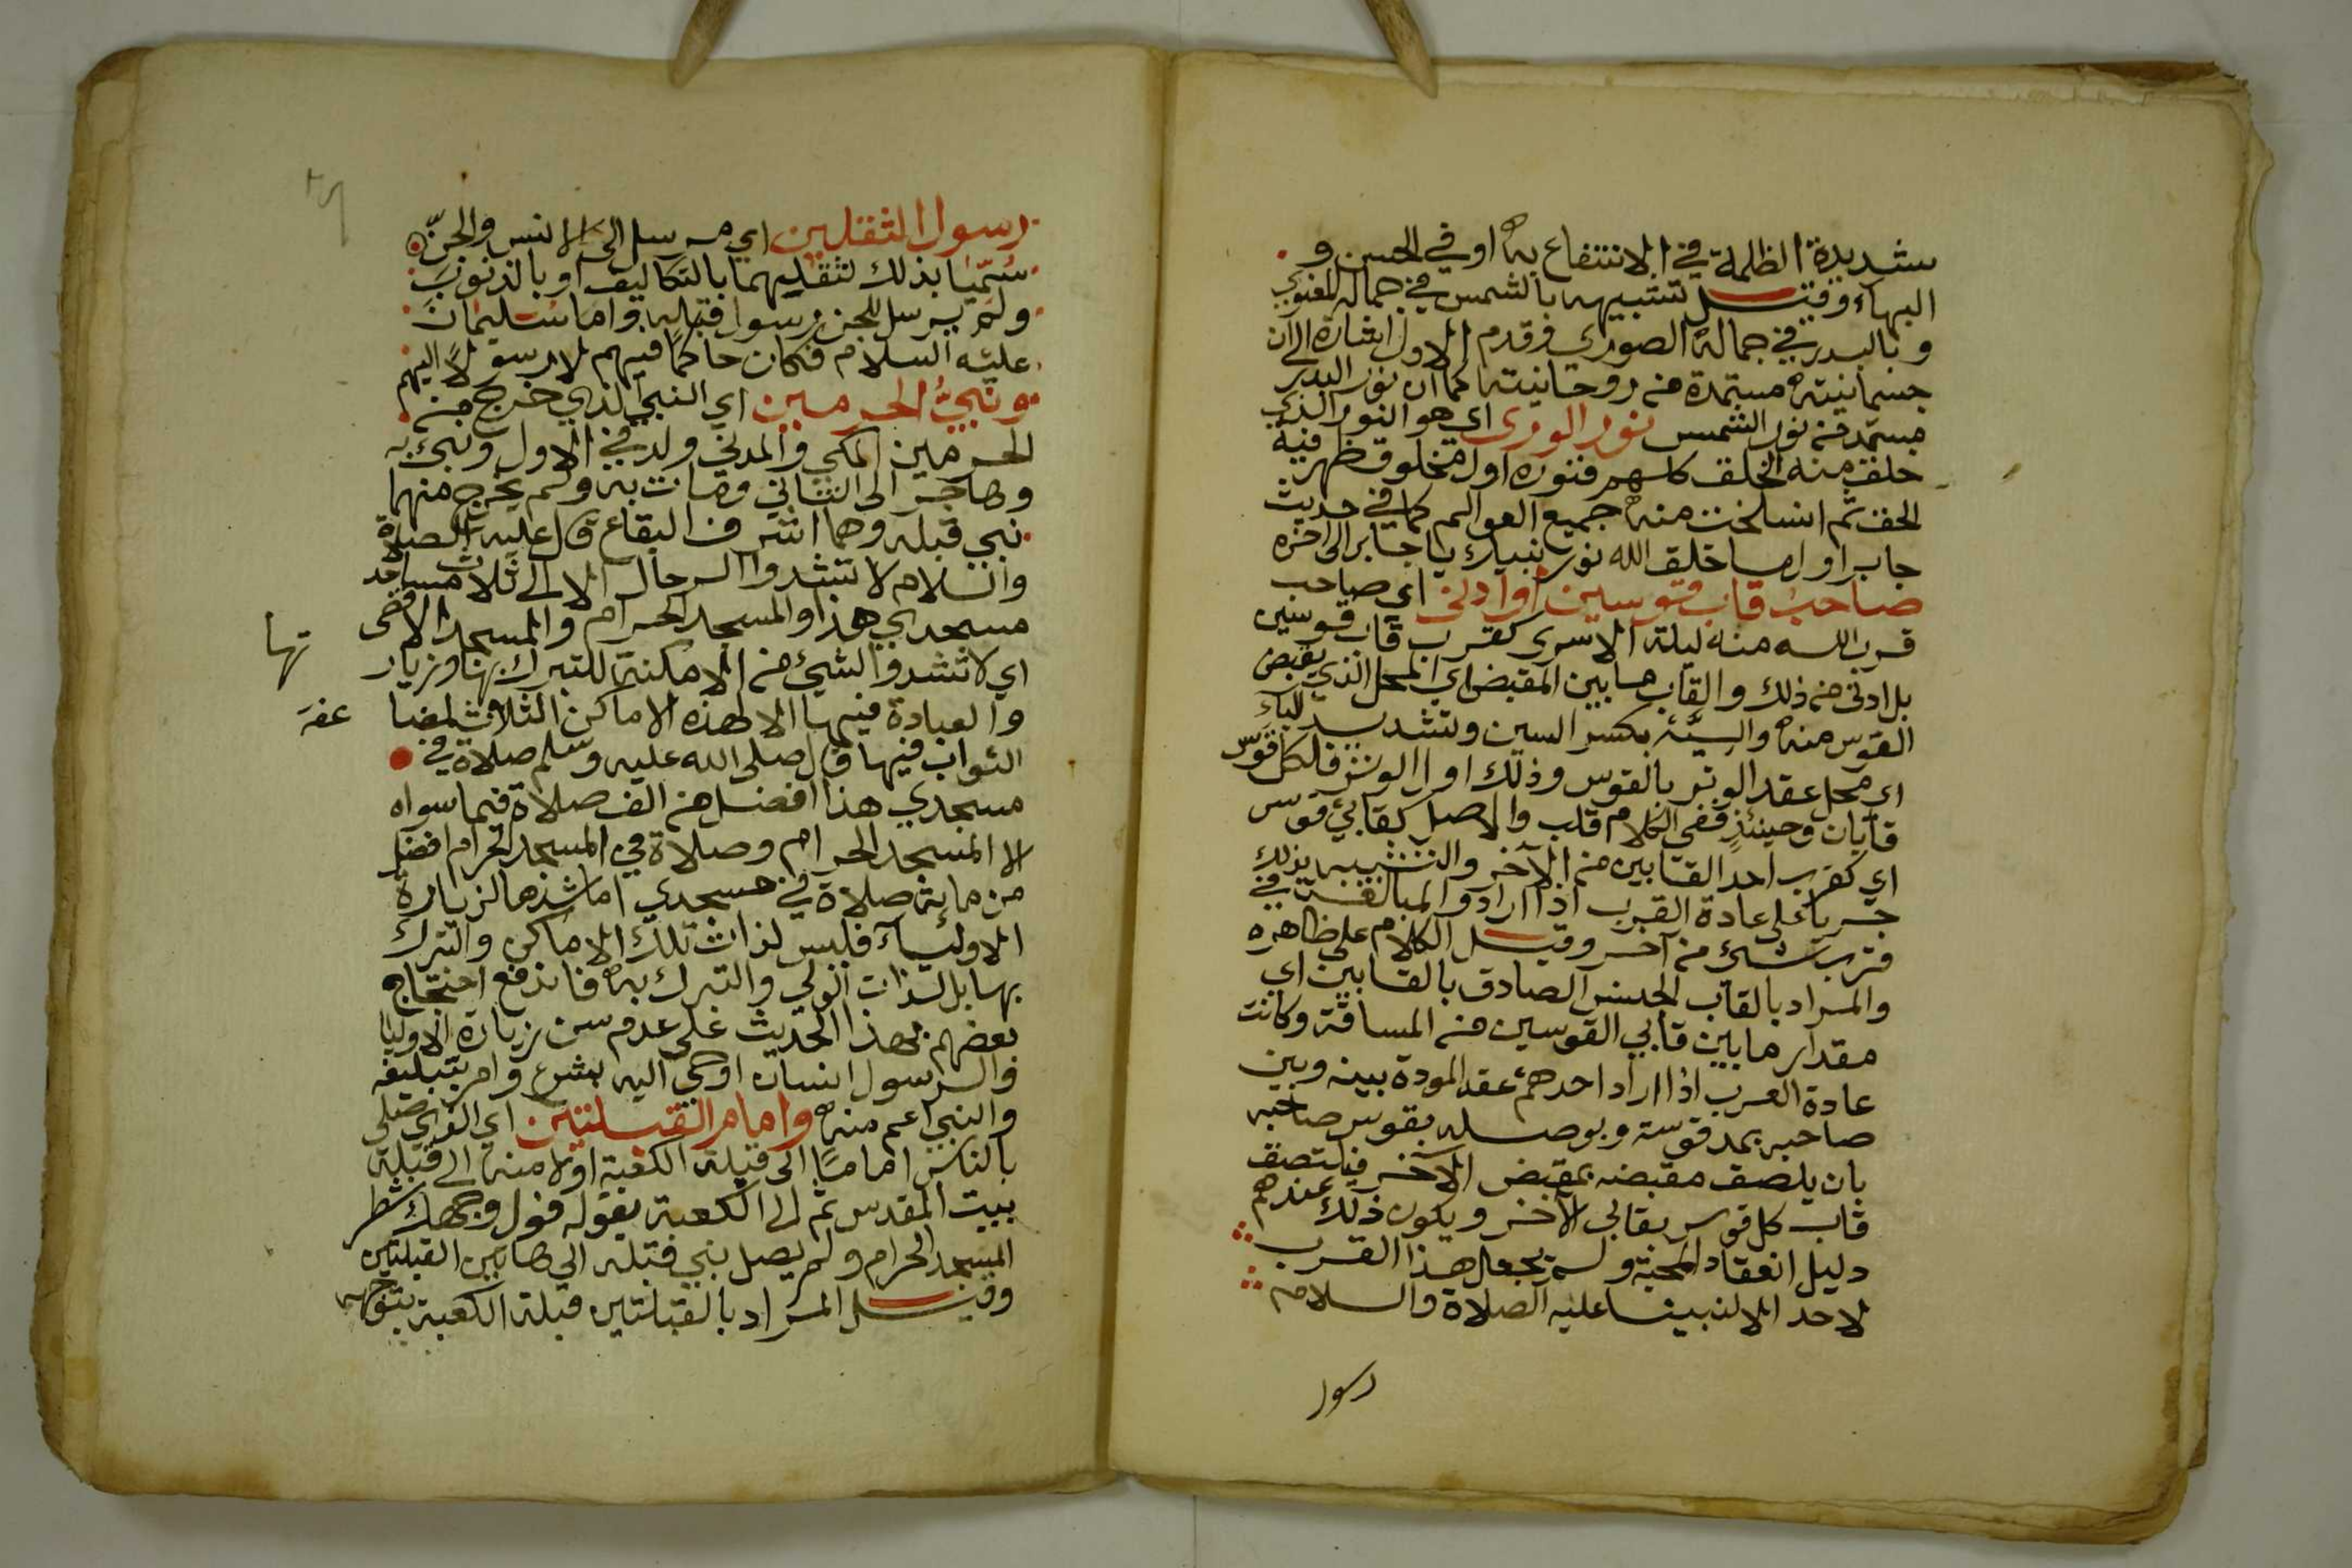 شديدة الظلمة في الانتفاع به او في الحسن و
البهاء وقيل تشبيهه بالشمس في جماله المعنوي
وبالبدر في جماله الصوري وقدم الاول اشارة الى ان
جسمانيته مستمدة من روحانيته كما ان نور البدر
مستمد من نور الشمس نور الورى اي هو النور الذي
خلق منه الخلق كلهم فنوره اول مخلوق ظهر فيه
الحق ثم انسلخت منه جميع العوالم كما في حديث
جابر اول ما خلق الله نور نبيك يا جابر الى اخره
صاحب قاب قوسين او ادنى اي صاحب
قرب الله منه ليلة الاسرى كقرب قاب قوسين
بل ادنى من ذلك والقاب ما بين المقبض اي المحل الذي يقبض
القوس منه والسية بكسر السين وتشديد الياء
اي محل عقد الوتر بالقوس وذلك اول الوتر فلكل قوس
قابان وحينئذٍ ففي الكلام قلب والاصل كقابي قوس
اي كقرب احد القابين من الآخر والتشبيه بذلك
جريا على عادة القرب اذا ارادوا المبالغة في
قرب شيء من آخر وقيل الكلام على ظاهره
والمراد بالقاب الجنس الصادق بالقابين اي
مقدار ما بين قابي القوسين من المسافة وكانت
عادة العرب اذا اراد احدهم عقد المودة بينه وبين
صاحبه يمد قوسه ويوصله بقوس صاحبه
بان يلصق مقبضه بمقبض الآخر فيلتصق
قاب كل قوس بقاب الآخر ويكون ذلك عندهم
دليل انعقاد المحبة ولم يجعل هذا القرب
لاحد الا لنبينا عليه الصلاة والسلام
رسول
رسول الثقلين اي مرسل الى الانس والجنّ
سُمّيا بذلك لثقلهما بالتكاليف او بالذنوب
ولم يرسل للجن رسول قبله واما سليمان
عليه السلام فكان حاكمًا فيهم لا رسولاً اليهم
ونبيُّ الحرمين اي النبي الذي خرج من
الحرمين المكي والمدني ولد في الاول ونبئ به
وهاجر الى الثاني ومات به ولم يخرج منهما
نبي قبله وهما اشرف البقاع قال عليه الصلاة
والسلام لا تشدوا الرحال الا الى ثلاث مساجد
مسجدي هذا والمسجد الحرام والمسجد الاقصى
اي لا تشدوا لشيئ من الامكنة للتبرك بها وزيار
تها
والعبادة فيها الا لهذه الاماكن الثلاث لمضا
عفة
الثواب فيها قال صلى الله عليه وسلم صلاة في
مسجدي هذا افضل من الف صلاة فيما سواه
الا المسجد الحرام وصلاة في المسجد الحرام افضل
من ماية صلاة في مسجدي اما شدها لزيارة
الاولياء فليس لذات تلك الاماكن والتبرك
بها بل لذات الولي والتبرك به فاندفع احتجاج
بعضهم بهذا الحديث على عدم سن زيارة الاوليا
والرسول انسان اوحي اليه بشرع وامر بتبليغه
والنبي اعم منه وامام القبلتين اي الذي صلى
بالناس امامًا الى قبلة الكعبة اولا منه الى قبلة
بيت المقدس ثم الى الكعبة بقوله فول وجهك شطر
المسجد الحرام ولم يصل نبي قبله الى هاتين القبلتين
وقيل المراد بالقبلتين قبلة الكعبة